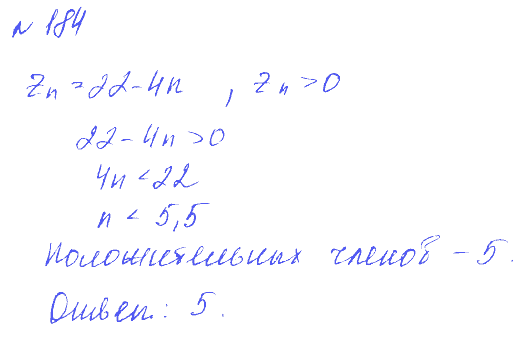 № 184
Zn = 22 - 4n , Zn > 0
22 - 4n > 0
4n < 22
n < 5,5
Положительных членов - 5.
Ответ: 5.